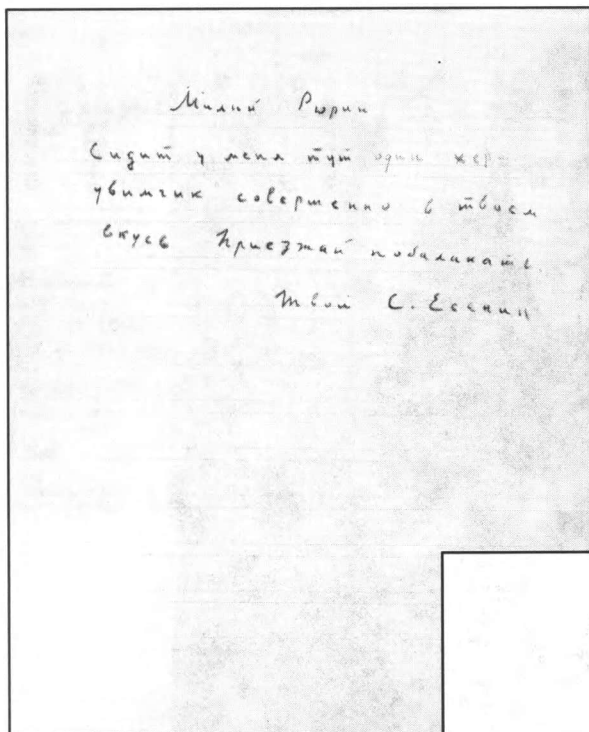 Милый Рюрик
Сидит у меня тут один хер-
увимчик совершенно в твоем
вкусе Приезжай побалакать.
Твой С. Есенин